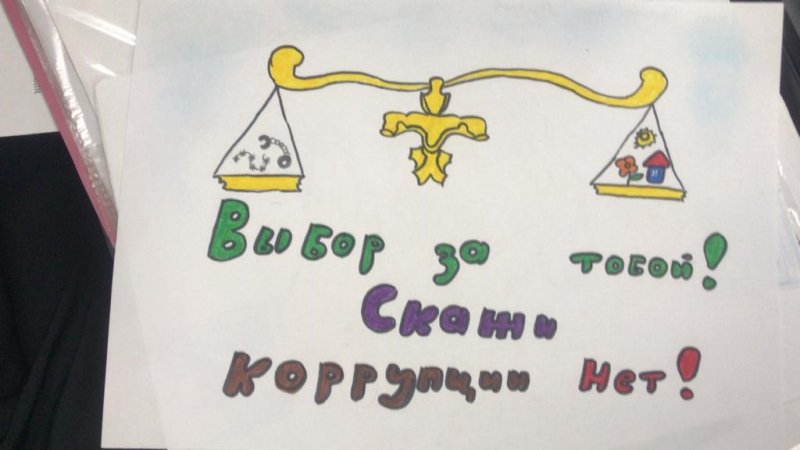 Выбор за тобой!
Скажи
коррупции Нет!